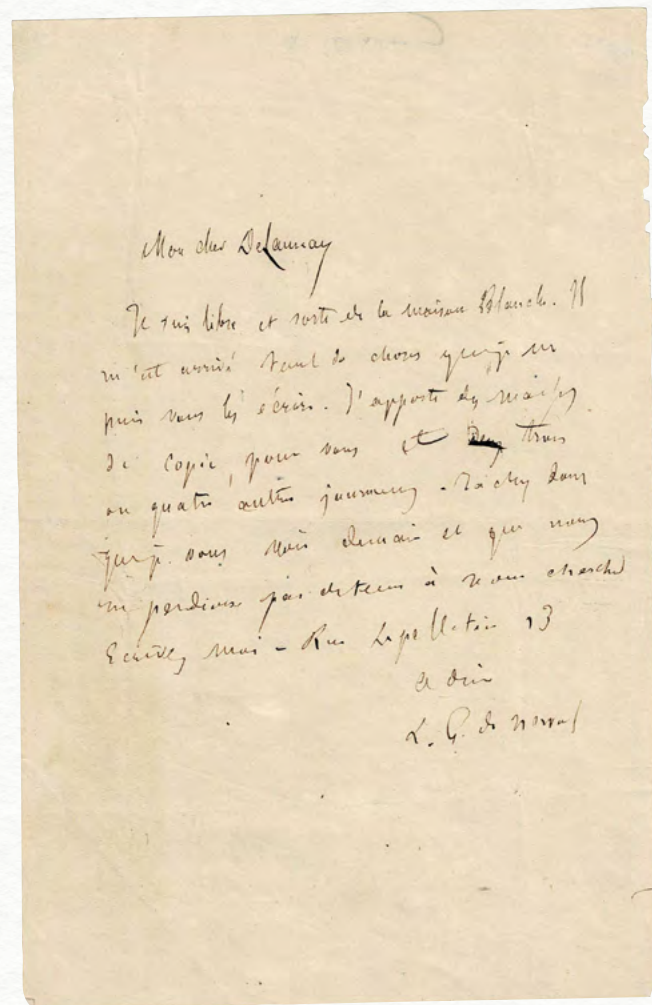 Mon cher Delaunay
Je suis libre et sorti de la maison Blanche. Il
m'est arrivé tant de choses que je ne
puis vous les écrire. J'apporte des masses
de copie, pour vous et trois
ou quatre autres journaux. Tâchez donc
que je vous voie demain et que nous
ne perdions pas de tems à nous chercher
Ecrivez moi – Rue Lepelletier 13
A dieu
L. G. de Nerval